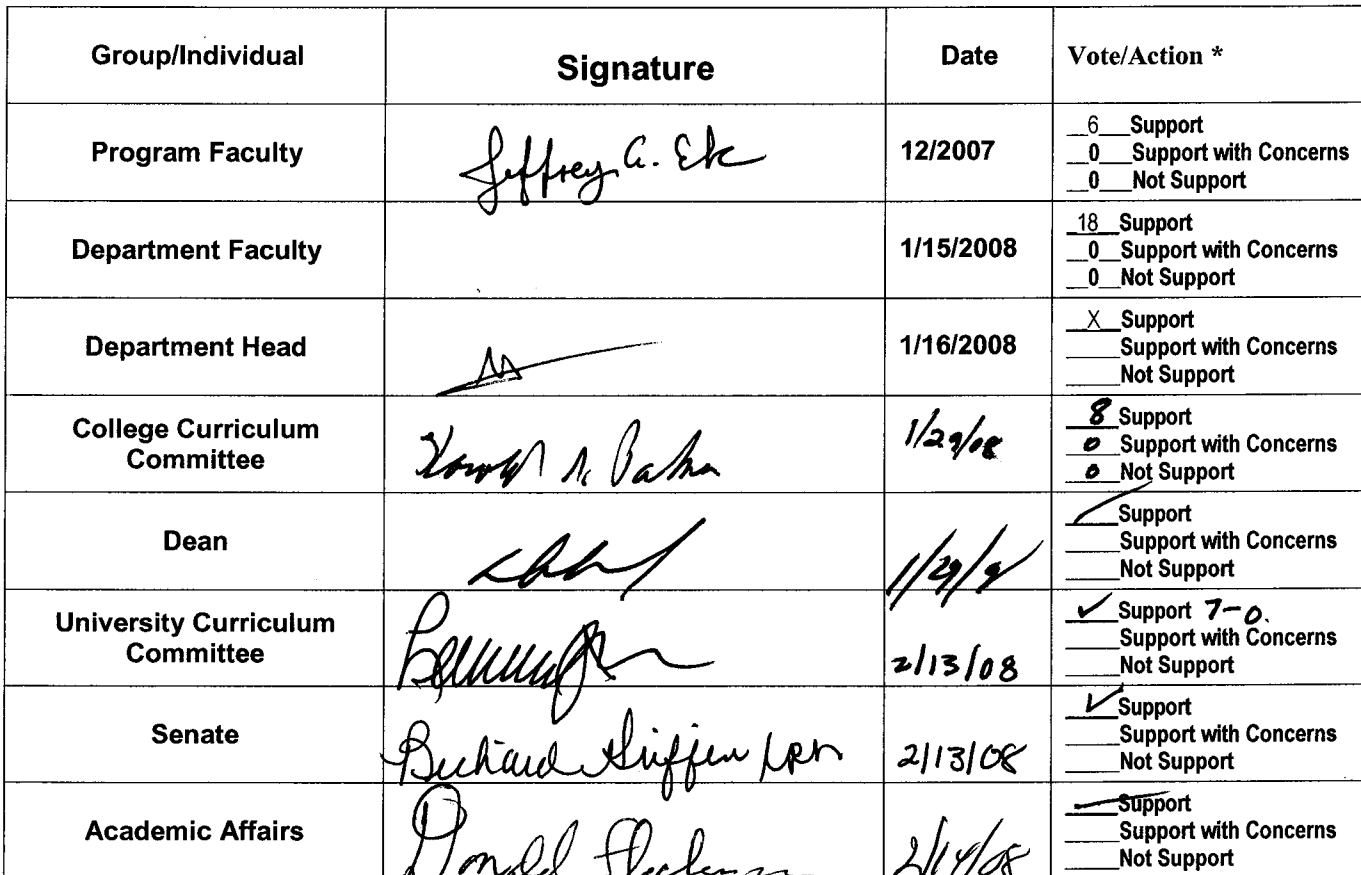 Group/Individual Signature Date Vote/Action *
Program Faculty Jeffrey A. Ek 12/2007
6 Support
0 Support with Concerns
0 Not Support
Department Faculty 1/15/2008
18 Support
0 Support with Concerns
0 Not Support
Department Head 1/16/2008
X Support
Support with Concerns
Not Support
College Curriculum
Committee
1/29/08
8 Support
0 Support with Concerns
0 Not Support
Dean
✓ Support
Support with Concerns
Not Support
University Curriculum
Committee
2/13/08
✓ Support 7-0.
Support with Concerns
Not Support
Senate 2/13/08
✓ Support
Support with Concerns
Not Support
Academic Affairs Donald 2/14/08
Support
Support with Concerns
Not Support